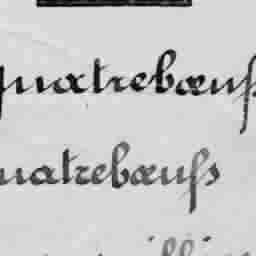 quatrebœufs
quatrebœufs